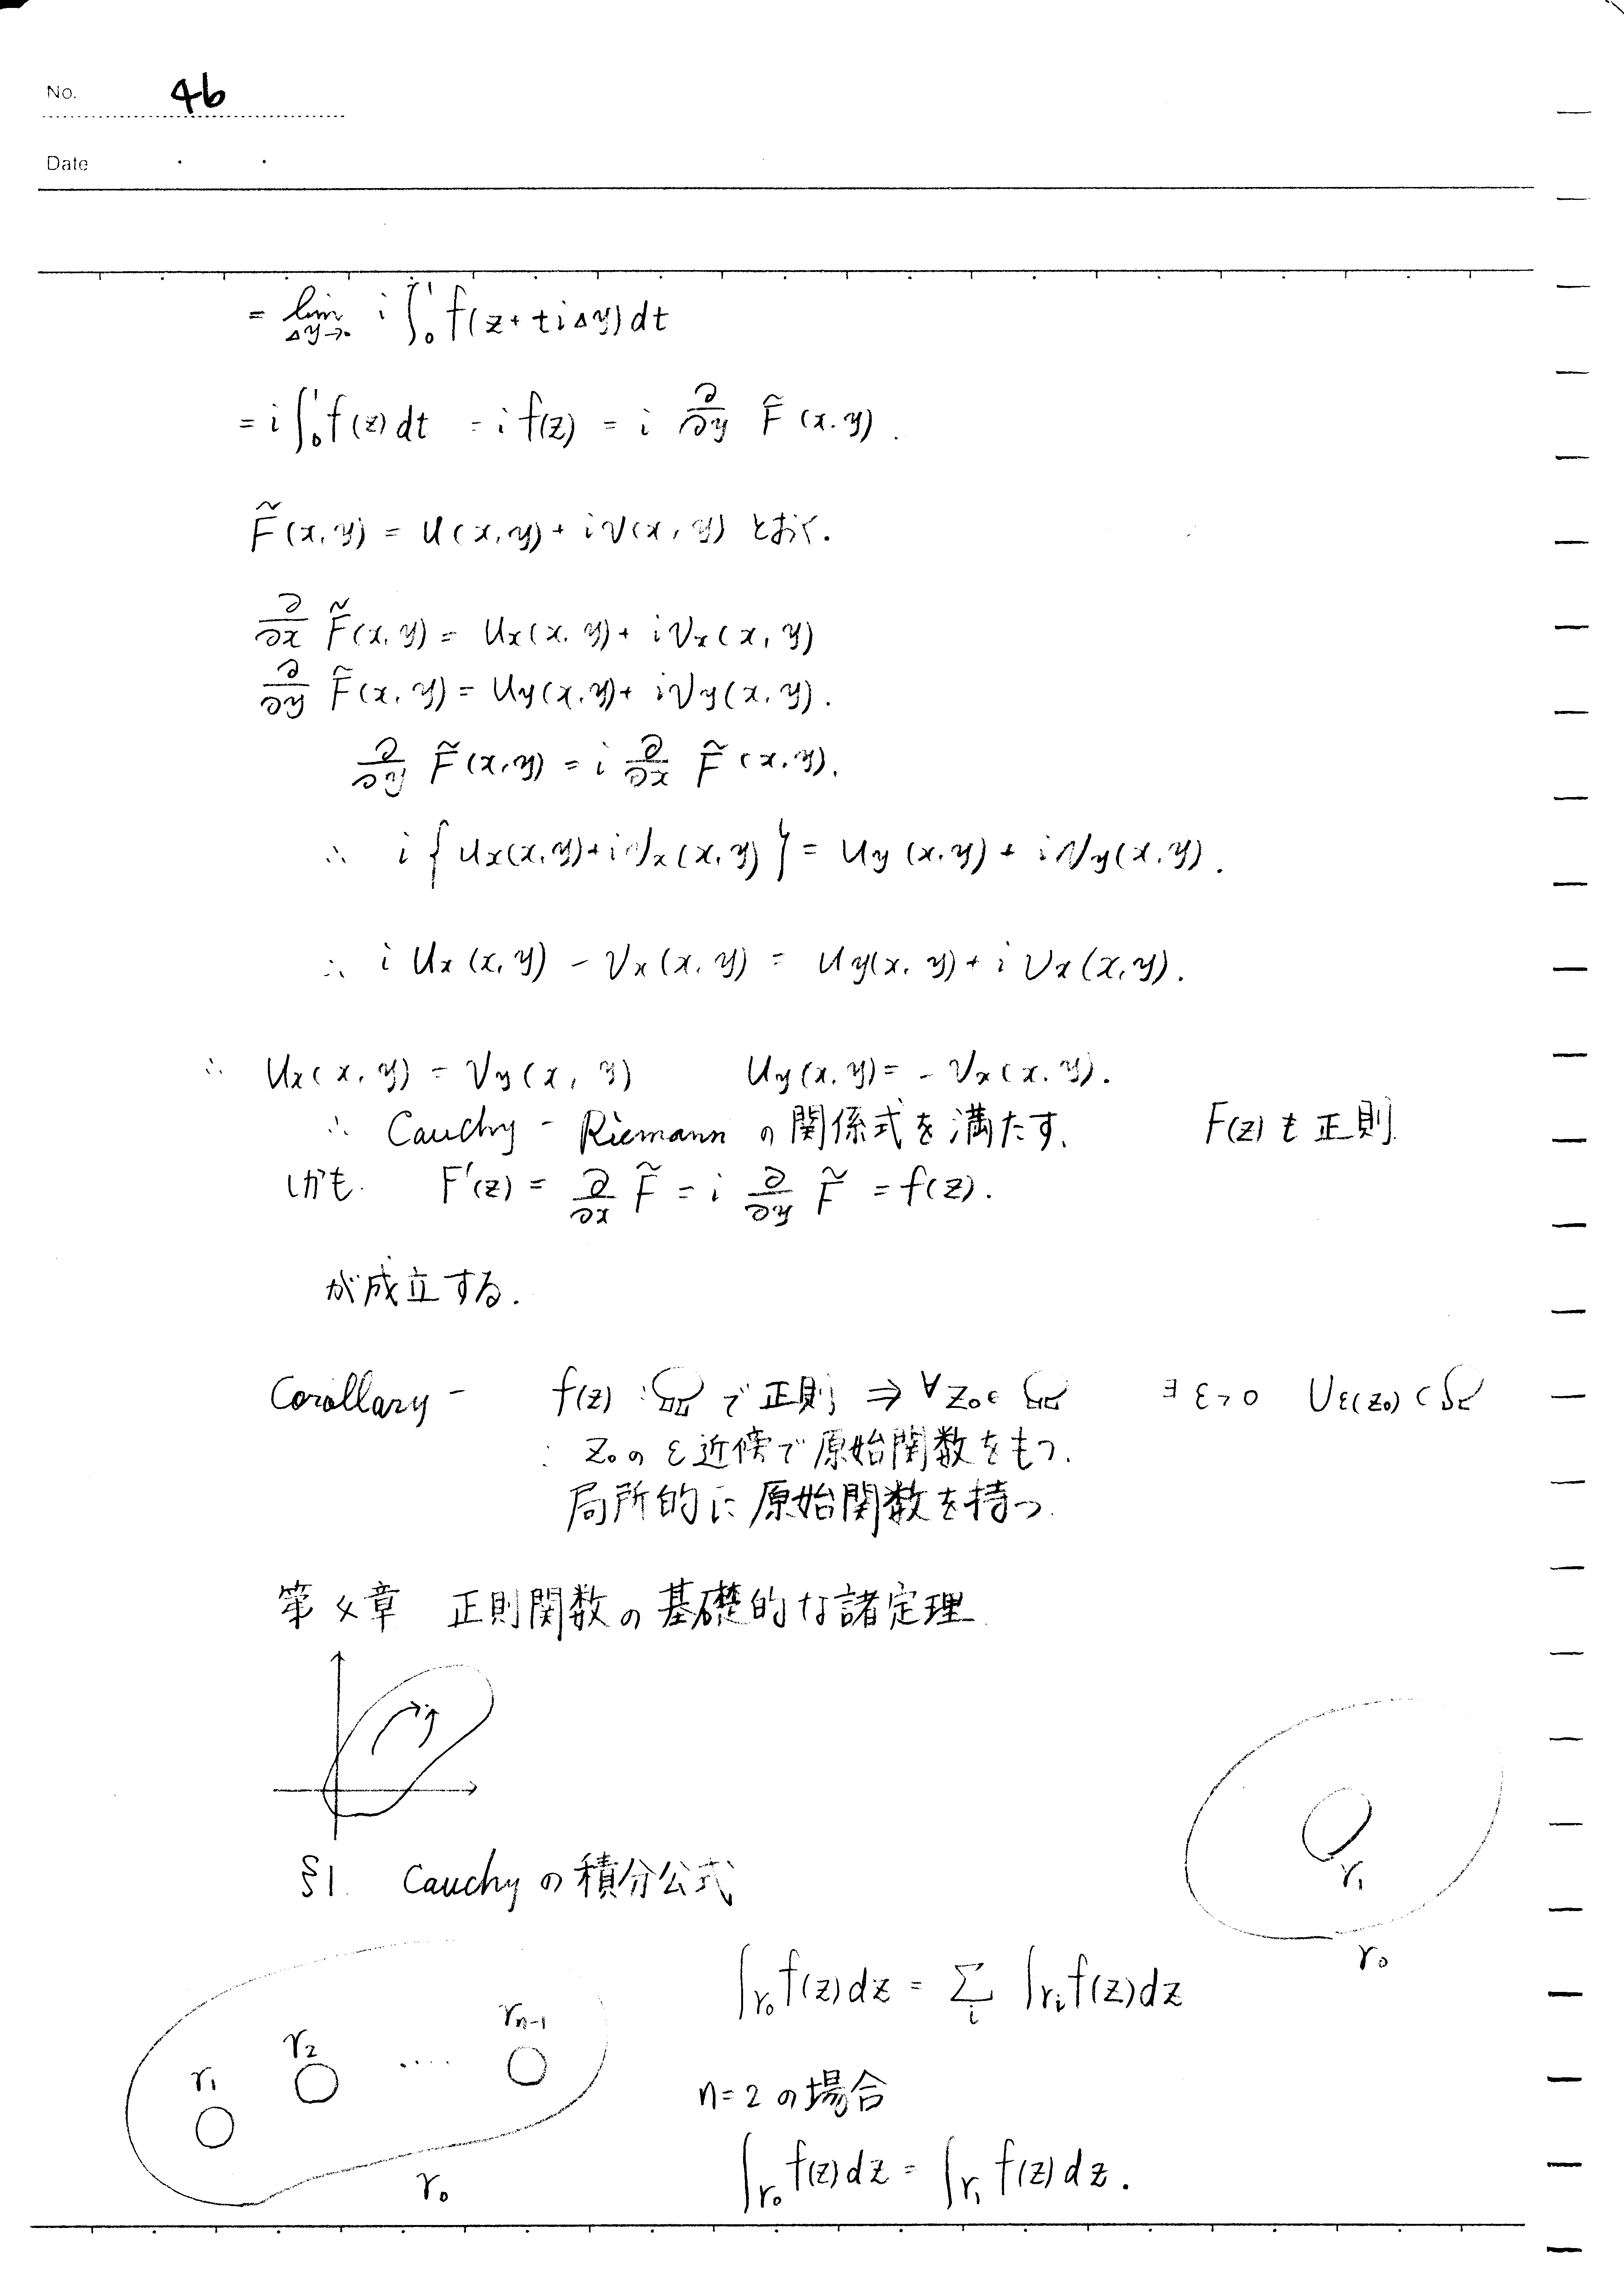 No. 46
Date
= lim_{Δy→0} i ∫_0^1 f(z + tiΔy) dt
= i ∫_0^1 f(z) dt = i f(z) = i ∂/∂y F̃(x, y).
F̃(x, y) = u(x, y) + iv(x, y) とおく.
∂/∂x F̃(x, y) = u_x(x, y) + iv_x(x, y)
∂/∂y F̃(x, y) = u_y(x, y) + iv_y(x, y).
∂/∂y F̃(x, y) = i ∂/∂x F̃(x, y).
∴ i { u_x(x, y) + iv_x(x, y) } = u_y(x, y) + iv_y(x, y).
∴ i u_x(x, y) − v_x(x, y) = u_y(x, y) + i v_x(x, y).
∴ u_x(x, y) = v_y(x, y) u_y(x, y) = − v_x(x, y).
∴ Cauchy − Riemann の関係式を満たす. F(z) も正則.
しかも. F'(z) = ∂/∂x F̃ = i ∂/∂y F̃ = f(z).
が成立する.
Corollary − f(z) : Ω で正則 ⇒ ∀z₀ ∈ Ω ∃ε>0 U_ε(z₀) ⊂ Ω
: z₀ の ε近傍で原始関数をもつ.
局所的に原始関数を持つ.
第4章 正則関数の基礎的な諸定理
γ₁
§1. Cauchy の積分公式
γ₀
∫_{γ₀} f(z) dz = Σ_i ∫_{γ_i} f(z) dz
γ₁ γ₂ .... γ_{n−1}
n=2 の場合
∫_{γ₀} f(z) dz = ∫_{γ₁} f(z) dz.
γ₀